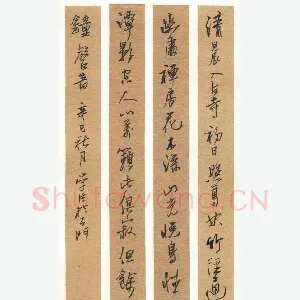 清晨入古寺初日照高林竹徑通
幽處禪房花木深山光悅鳥性
潭影空人心萬籟此俱寂但餘
鐘磬音 辛巳秋月
Shufawang.CN